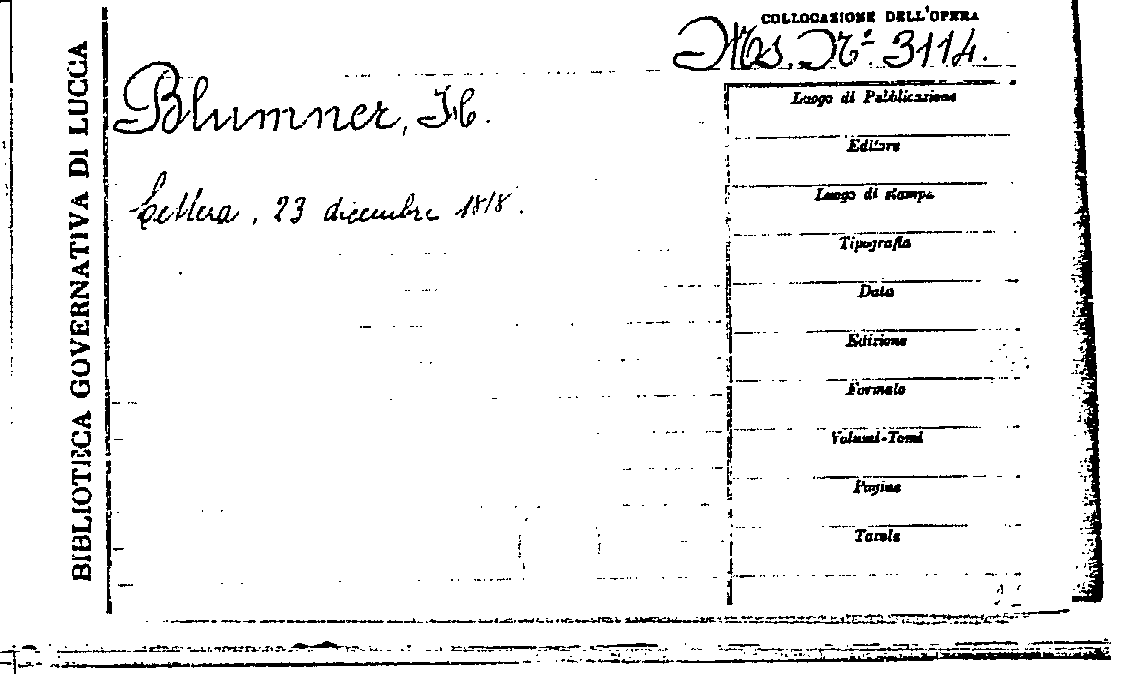 COLLOCAZIONE DELL'OPERA
Ms. Nº 3114.
BIBLIOTECA GOVERNATIVA DI LUCCA
Blumner, H.
Lettera, 23 dicembre 1818.
Luogo di Pubblicazione
Editore
Luogo di stampa
Tipografia
Data
Edizione
Formato
Volumi-Tomi
Pagine
Tavole